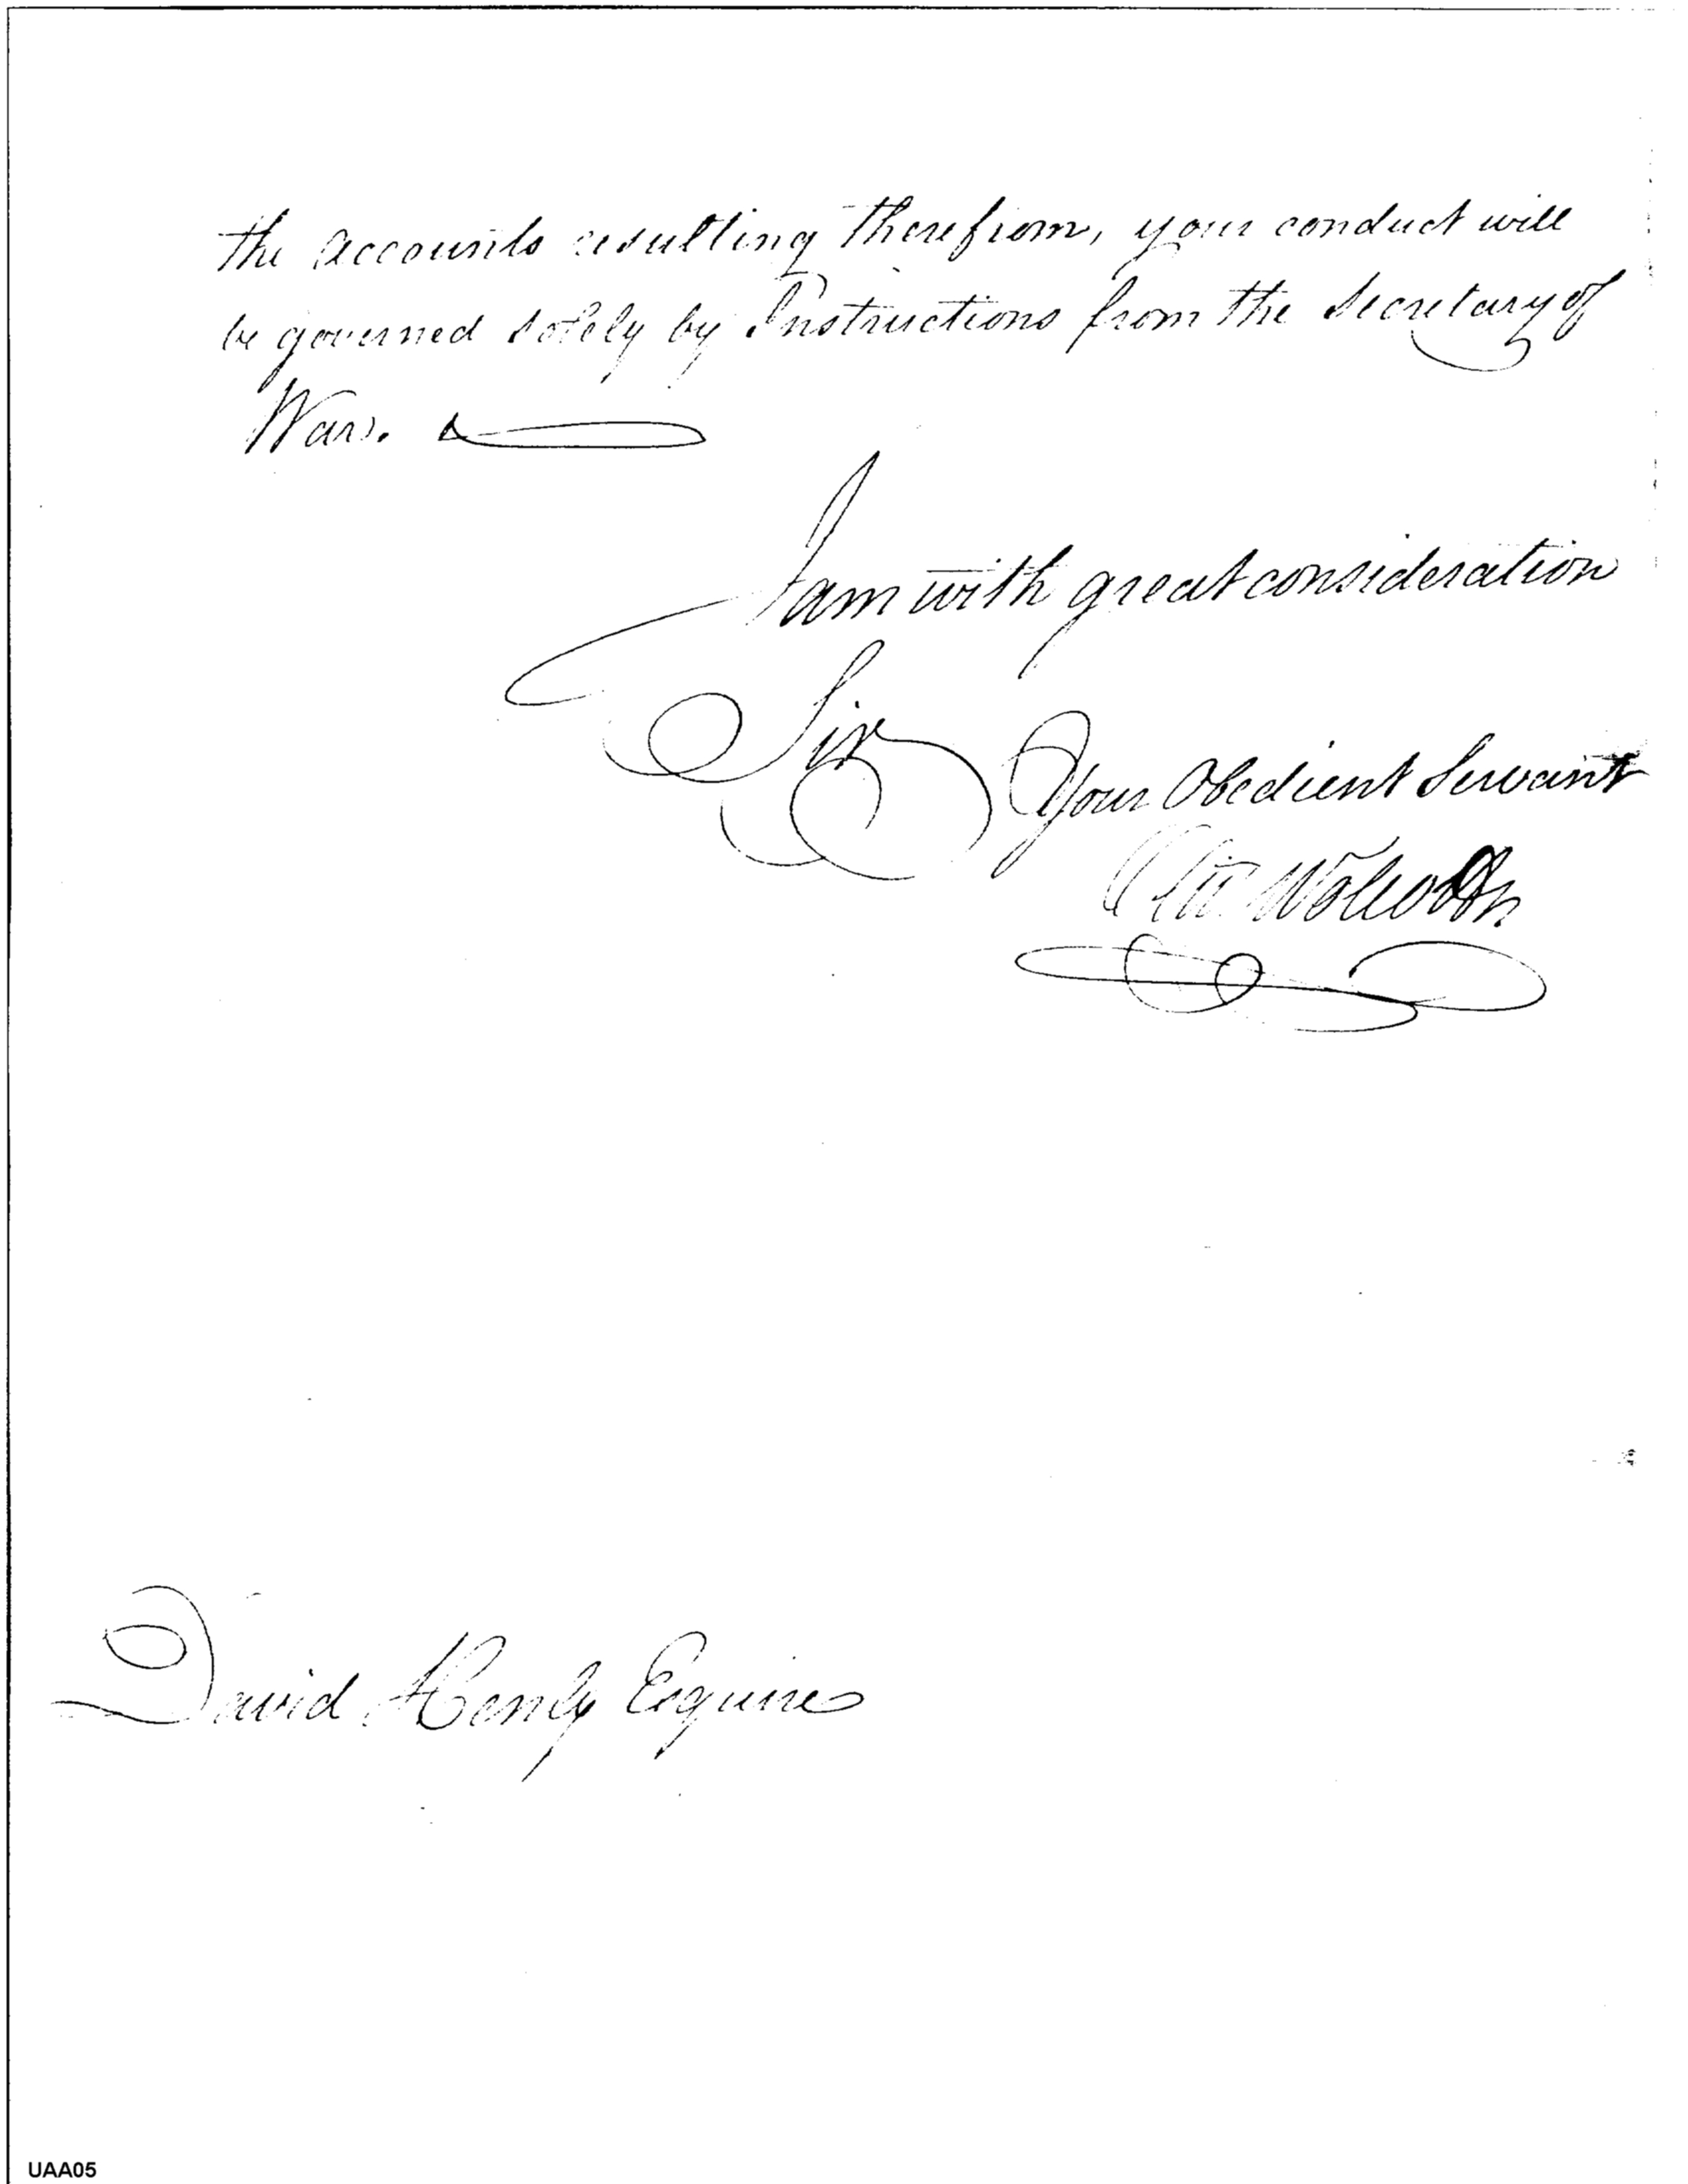 the Accounts resulting therefrom, your conduct will
be governed solely by Instructions from the Secretary of
War.
I am with great consideration
Sir
Your Obedient Servant
Oliv Wolcott
David Henly Esquire
UAA05